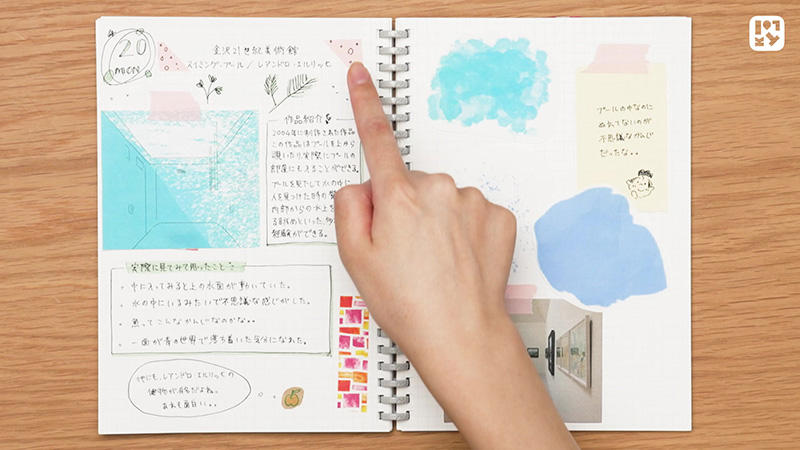 20
MON
金沢21世紀美術館
スイミング・プール / レアンドロ・エルリッヒ
作品紹介
2004年に制作された作品
この作品はプールを上から
覗いたり、実際にプールの
部屋にも入ることができる。
プールを見下して水の中に
人を見つけた時の
内部からの水上を
経験ができる。
実際に見てみて思ったこと
・ 中に入ってみると上の水面が動いていた。
・ 水の中にいるみたいで不思議な感じがした。
・ 魚ってこんなかんじなのかな..
・ 一面が青の世界で落ち着いた気分になれた。
他にも、レアンドロ・エルリッヒの
建物が有名だよね。
あれも面白い..
プールの中なのに
ぬれてないのが
不思議なかんじ
だったな..